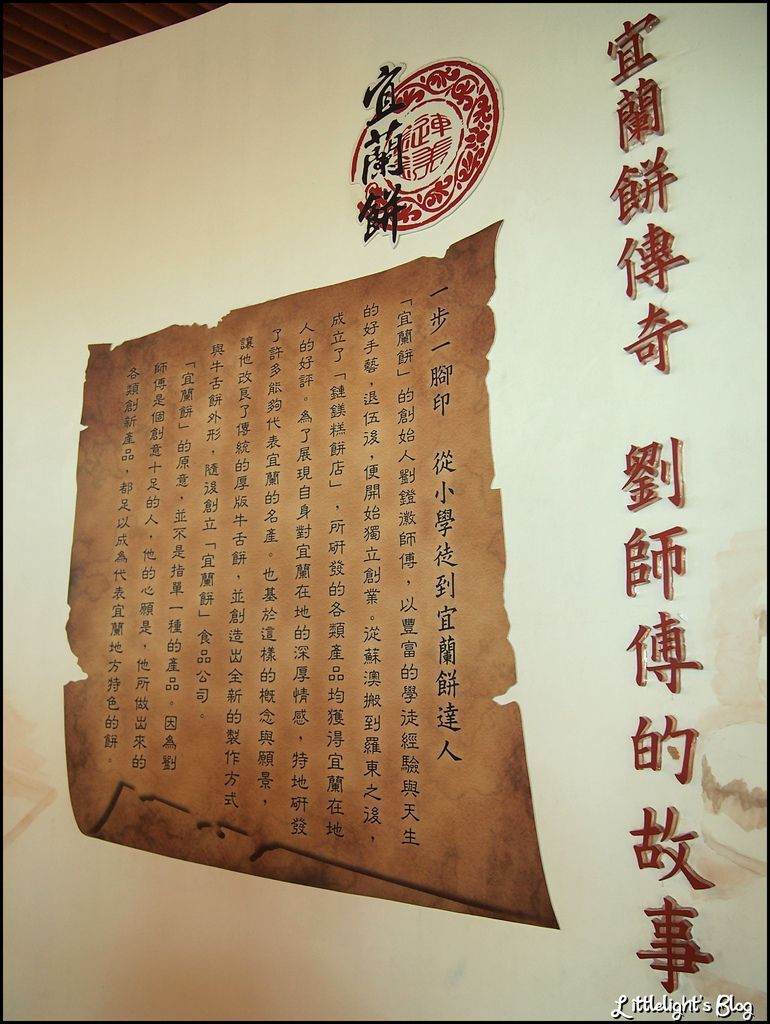 宜蘭餅傳奇 劉師傅的故事
宜蘭餅
一步一腳印 從小學徒到宜蘭餅達人
「宜蘭餅」的創始人劉鐙徽師傅，以豐富的學徒經驗與天生
的好手藝，退伍後，便開始獨立創業。從蘇澳搬到羅東之後，
成立了「鏈鎂糕餅店」，所研發的各類產品均獲得宜蘭在地
人的好評。為了展現自身對宜蘭在地的深厚情感，特地研發
了許多能夠代表宜蘭的名產。也基於這樣的概念與願景，
讓他改良了傳統的厚版牛舌餅，並創造出全新的製作方式
與牛舌餅外形，隨後創立「宜蘭餅」食品公司。
「宜蘭餅」的原意，並不是指單一種的產品。因為劉
師傅是個創意十足的人，他的心願是，他所做出來的
各類創新產品，都足以成為代表宜蘭地方特色的餅。
Littlelight's Blog